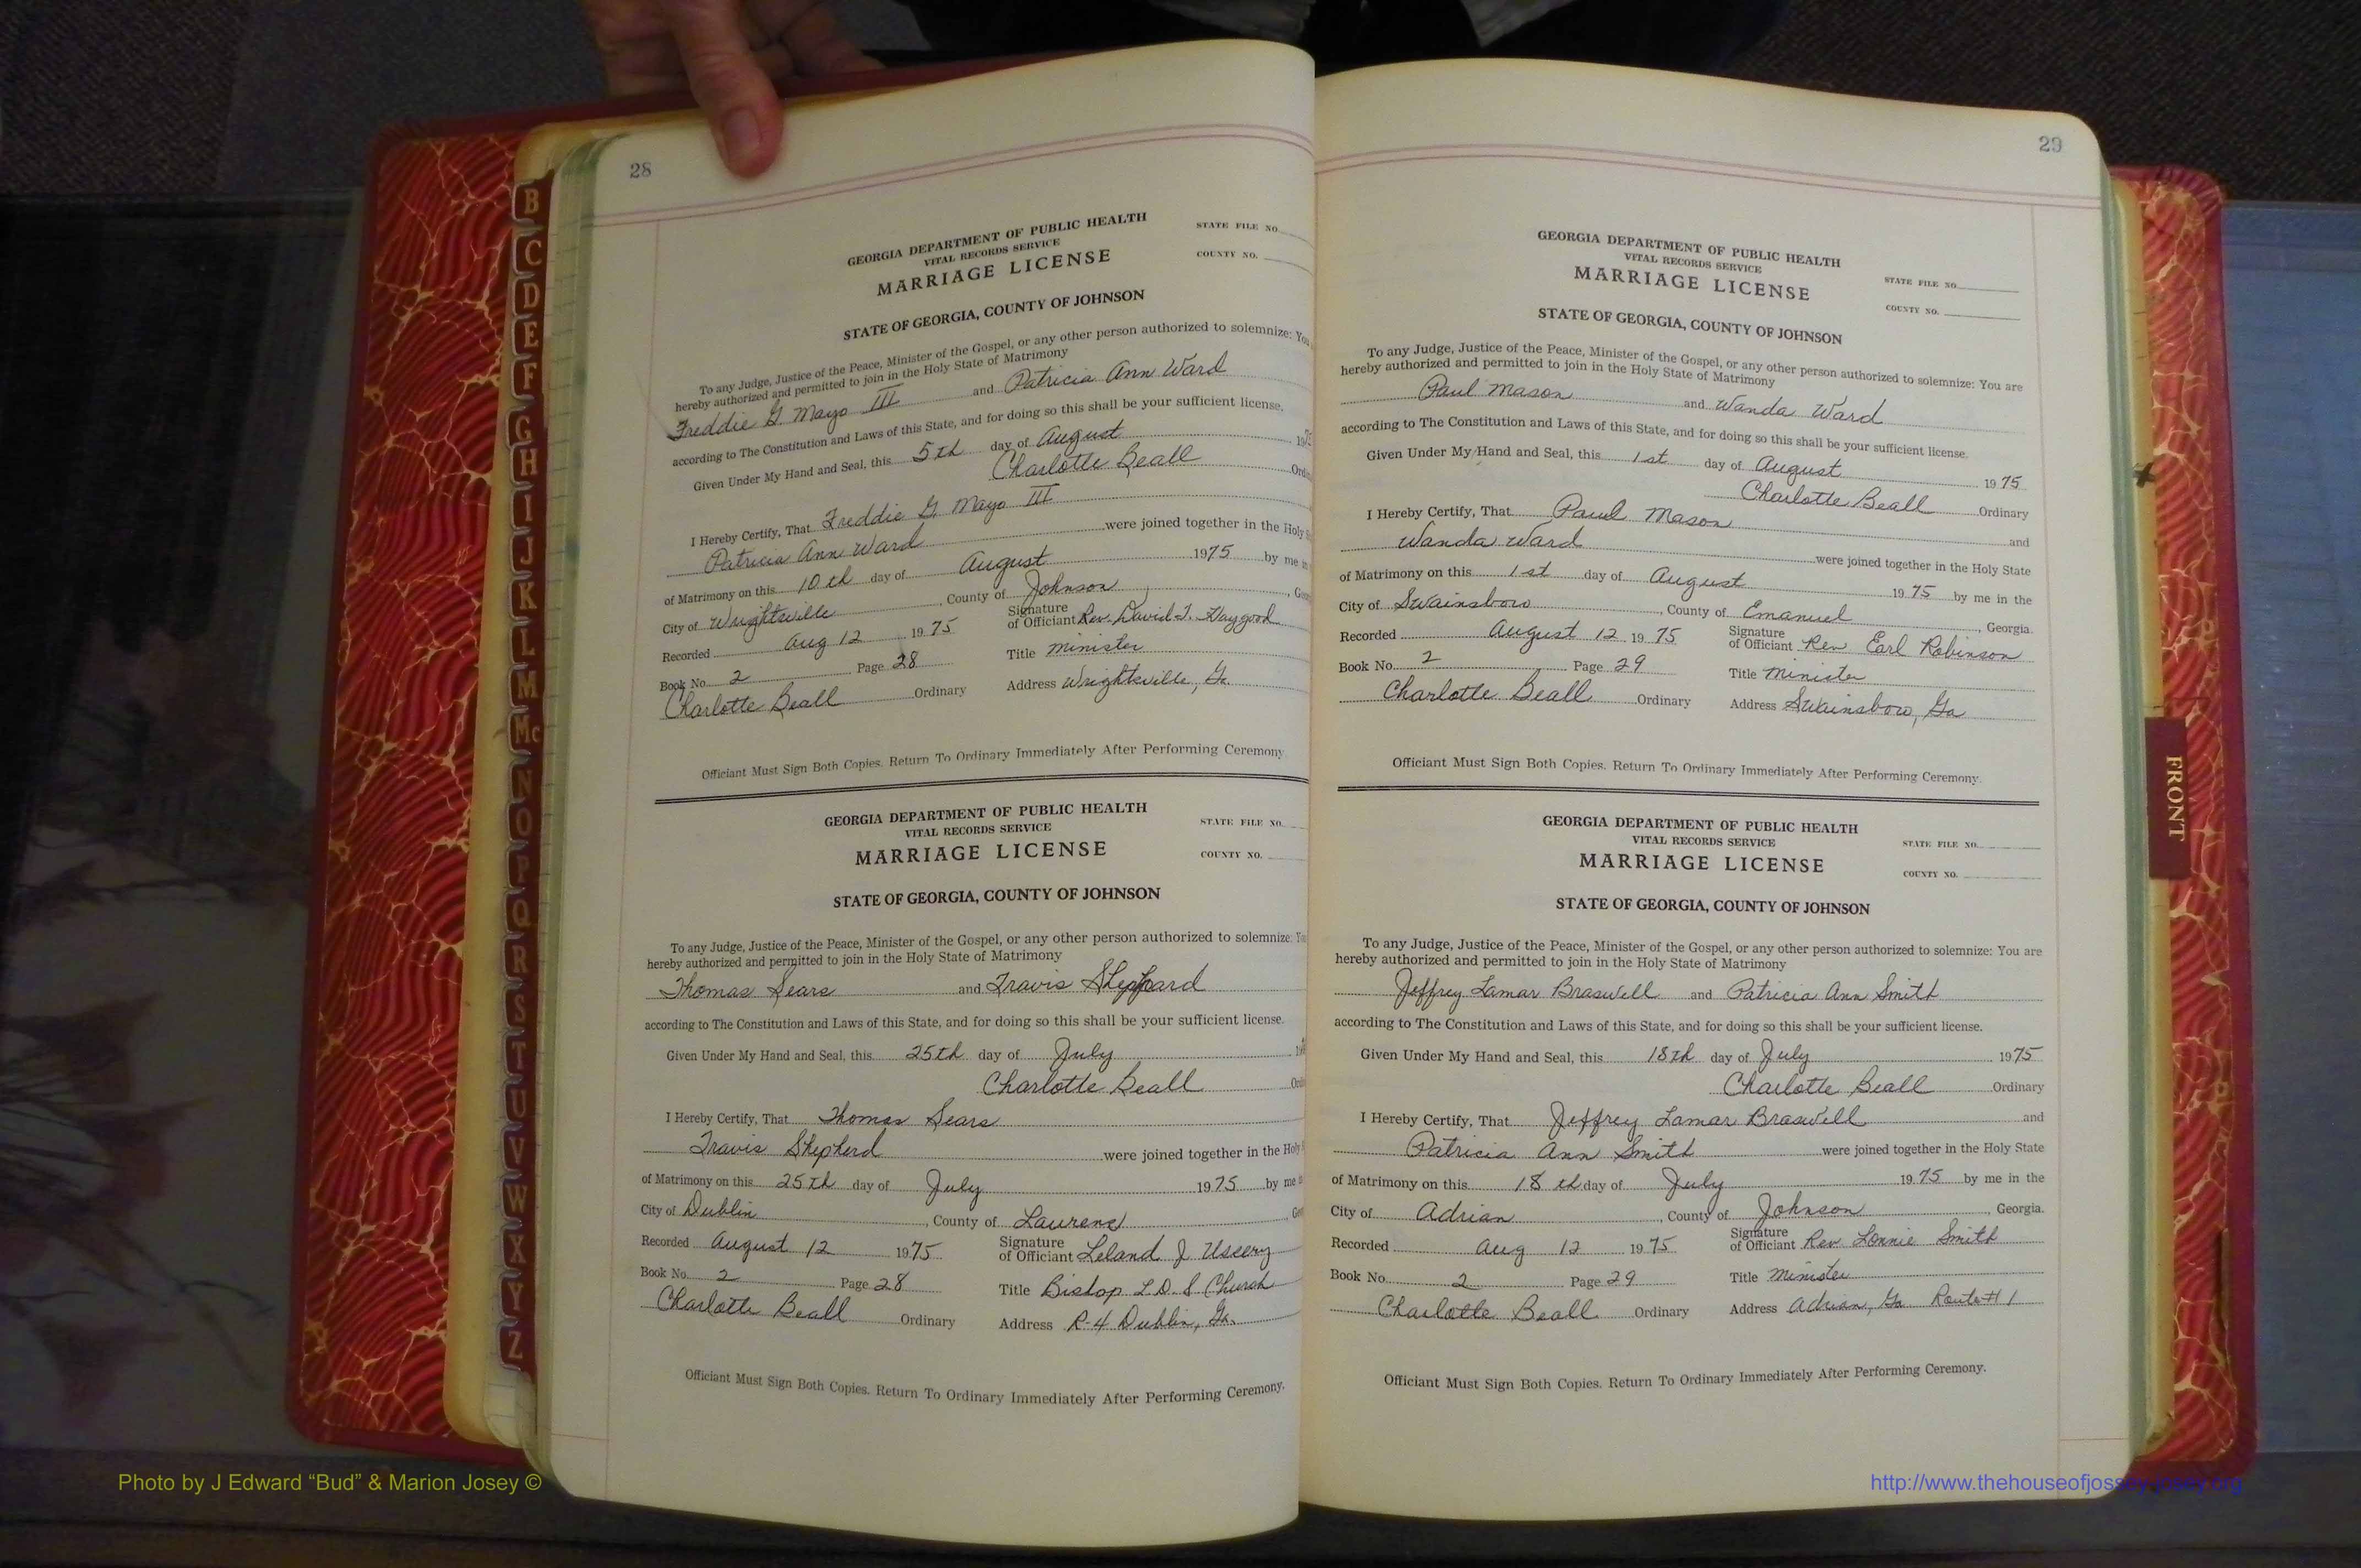 28
GEORGIA DEPARTMENT OF PUBLIC HEALTH
VITAL RECORDS SERVICE
MARRIAGE LICENSE
STATE FILE NO.
COUNTY NO.
STATE OF GEORGIA, COUNTY OF JOHNSON
To any Judge, Justice of the Peace, Minister of the Gospel, or any other person authorized to solemnize: You
hereby authorized and permitted to join in the Holy State of Matrimony
Freddie G. Mayo III and Patricia Ann Ward
according to The Constitution and Laws of this State, and for doing so this shall be your sufficient license.
Given Under My Hand and Seal, this 5th day of August 197
Charlotte Beall Ord
I Hereby Certify, That Freddie G. Mayo III
Patricia Ann Ward were joined together in the Holy
of Matrimony on this 10th day of August 1975 by me
City of Wrightsville, County of Johnson, Geo
Recorded Aug 12 1975 Signature of Officiant Rev. David T. Haygood
Book No. 2 Page 28 Title minister
Charlotte Beall Ordinary Address Wrightsville, Ga.
Officiant Must Sign Both Copies. Return To Ordinary Immediately After Performing Ceremony.
GEORGIA DEPARTMENT OF PUBLIC HEALTH
VITAL RECORDS SERVICE
MARRIAGE LICENSE
STATE FILE NO.
COUNTY NO.
STATE OF GEORGIA, COUNTY OF JOHNSON
To any Judge, Justice of the Peace, Minister of the Gospel, or any other person authorized to solemnize: You
hereby authorized and permitted to join in the Holy State of Matrimony
Thomas Sears and Travis Sheppard
according to The Constitution and Laws of this State, and for doing so this shall be your sufficient license.
Given Under My Hand and Seal, this 25th day of July 19
Charlotte Beall Ord
I Hereby Certify, That Thomas Sears
Travis Shepherd were joined together in the Holy
of Matrimony on this 25th day of July 1975 by me
City of Dublin, County of Laurens, Geo
Recorded August 12 1975 Signature of Officiant Leland J. Uscery
Book No. 2 Page 28 Title Bishop L.D.S Church
Charlotte Beall Ordinary Address R-4 Dublin, Ga.
Officiant Must Sign Both Copies. Return To Ordinary Immediately After Performing Ceremony.
29
GEORGIA DEPARTMENT OF PUBLIC HEALTH
VITAL RECORDS SERVICE
MARRIAGE LICENSE
STATE FILE NO.
COUNTY NO.
STATE OF GEORGIA, COUNTY OF JOHNSON
To any Judge, Justice of the Peace, Minister of the Gospel, or any other person authorized to solemnize: You are
hereby authorized and permitted to join in the Holy State of Matrimony
Paul Mason and Wanda Ward
according to The Constitution and Laws of this State, and for doing so this shall be your sufficient license.
Given Under My Hand and Seal, this 1st day of August 1975
Charlotte Beall Ordinary
I Hereby Certify, That Paul Mason and
Wanda Ward were joined together in the Holy State
of Matrimony on this 1st day of August 1975 by me in the
City of Swainsboro, County of Emanuel, Georgia.
Recorded August 12 1975 Signature of Officiant Rev Earl Robinson
Book No. 2 Page 29 Title minister
Charlotte Beall Ordinary Address Swainsboro, Ga
Officiant Must Sign Both Copies. Return To Ordinary Immediately After Performing Ceremony.
GEORGIA DEPARTMENT OF PUBLIC HEALTH
VITAL RECORDS SERVICE
MARRIAGE LICENSE
STATE FILE NO.
COUNTY NO.
STATE OF GEORGIA, COUNTY OF JOHNSON
To any Judge, Justice of the Peace, Minister of the Gospel, or any other person authorized to solemnize: You are
hereby authorized and permitted to join in the Holy State of Matrimony
Jeffrey Lamar Braswell and Patricia Ann Smith
according to The Constitution and Laws of this State, and for doing so this shall be your sufficient license.
Given Under My Hand and Seal, this 18th day of July 1975
Charlotte Beall Ordinary
I Hereby Certify, That Jeffrey Lamar Braswell and
Patricia Ann Smith were joined together in the Holy State
of Matrimony on this 18th day of July 1975 by me in the
City of Adrian, County of Johnson, Georgia.
Recorded Aug 12 1975 Signature of Officiant Rev. Lonnie Smith
Book No. 2 Page 29 Title Minister
Charlotte Beall Ordinary Address Adrian, Ga Route #1
Officiant Must Sign Both Copies. Return To Ordinary Immediately After Performing Ceremony.
B
C
D
E
F
G
H
I
J
K
L
M
Mc
N
O
P
Q
R
S
T
U
V
W
X
Y
Z
FRONT
Photo by J Edward “Bud” & Marion Josey ©
http://www.thehouseofjossey-josey.org